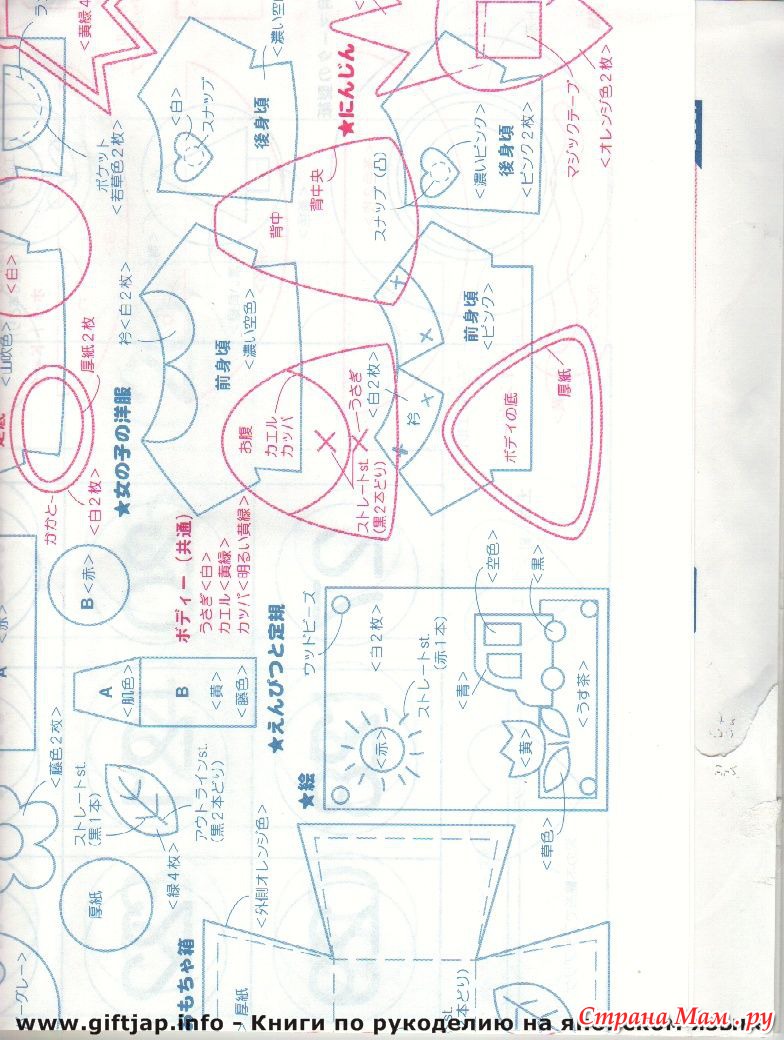 <黄緑4
ポケット
<若草色2枚>
<白>
スナップ
<濃い空
後身頃
★にんじん
マジックテープ
<オレンジ色2枚>
<濃いピンク>
後身頃
<ピンク2枚>
背中
背中央
スナップ(凸)
<白>
<山吹色>
厚紙2枚
かかと
<白2枚>
★女の子の洋服
衿<白2枚>
前身頃
<濃い空色>
お腹
カエル
カッパ
うさぎ
<白2枚>
衿
ストレートst.
(黒2本どり)
前身頃
<ピンク>
ボディの底
厚紙
<赤>
A
B<赤>
ボディー(共通)
うさぎ<白>
カエル<黄緑>
カッパ<明るい黄緑>
A
<肌色>
B
<黄>
<藤色>
★えんぴつと定規
★絵
ウッドビーズ
<白2枚>
ストレートst.
(赤1本)
<赤>
<青>
<空色>
<黒>
<うす茶>
<黄>
<草色>
<藤色2枚>
ストレートst.
(黒1本)
アウトラインst.
(黒2本どり)
<緑4枚>
厚紙
グレー>
おもちゃ箱
<外側オレンジ色>
厚紙
st.
本どり)
www.giftjap.info - Книги по рукоделию на японском языке
Страна Мам.ру